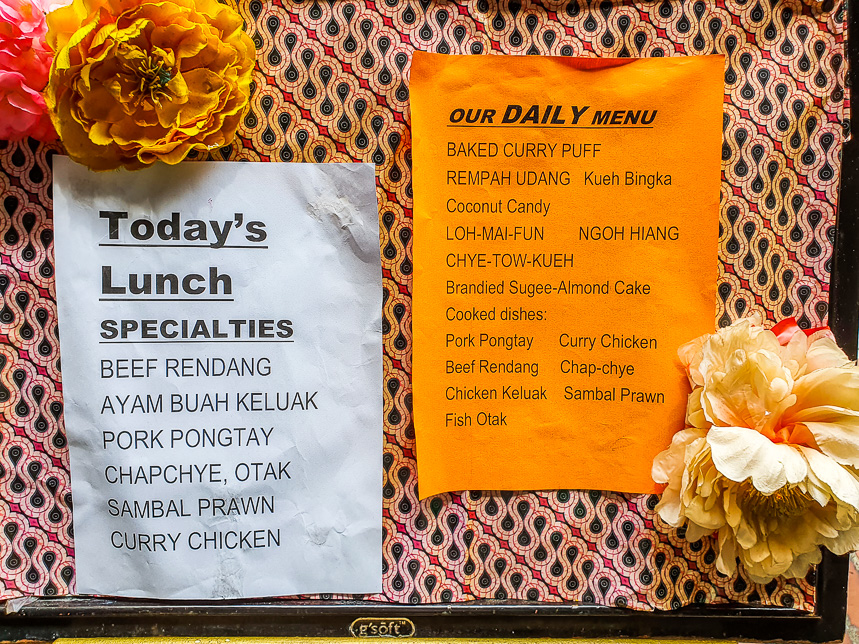 Today's
Lunch
SPECIALTIES
BEEF RENDANG
AYAM BUAH KELUAK
PORK PONGTAY
CHAPCHYE, OTAK
SAMBAL PRAWN
CURRY CHICKEN
OUR DAILY MENU
BAKED CURRY PUFF
REMPAH UDANG Kueh Bingka
Coconut Candy
LOH-MAI-FUN NGOH HIANG
CHYE-TOW-KUEH
Brandied Sugee-Almond Cake
Cooked dishes:
Pork Pongtay Curry Chicken
Beef Rendang Chap-chye
Chicken Keluak Sambal Prawn
Fish Otak
g'soft™